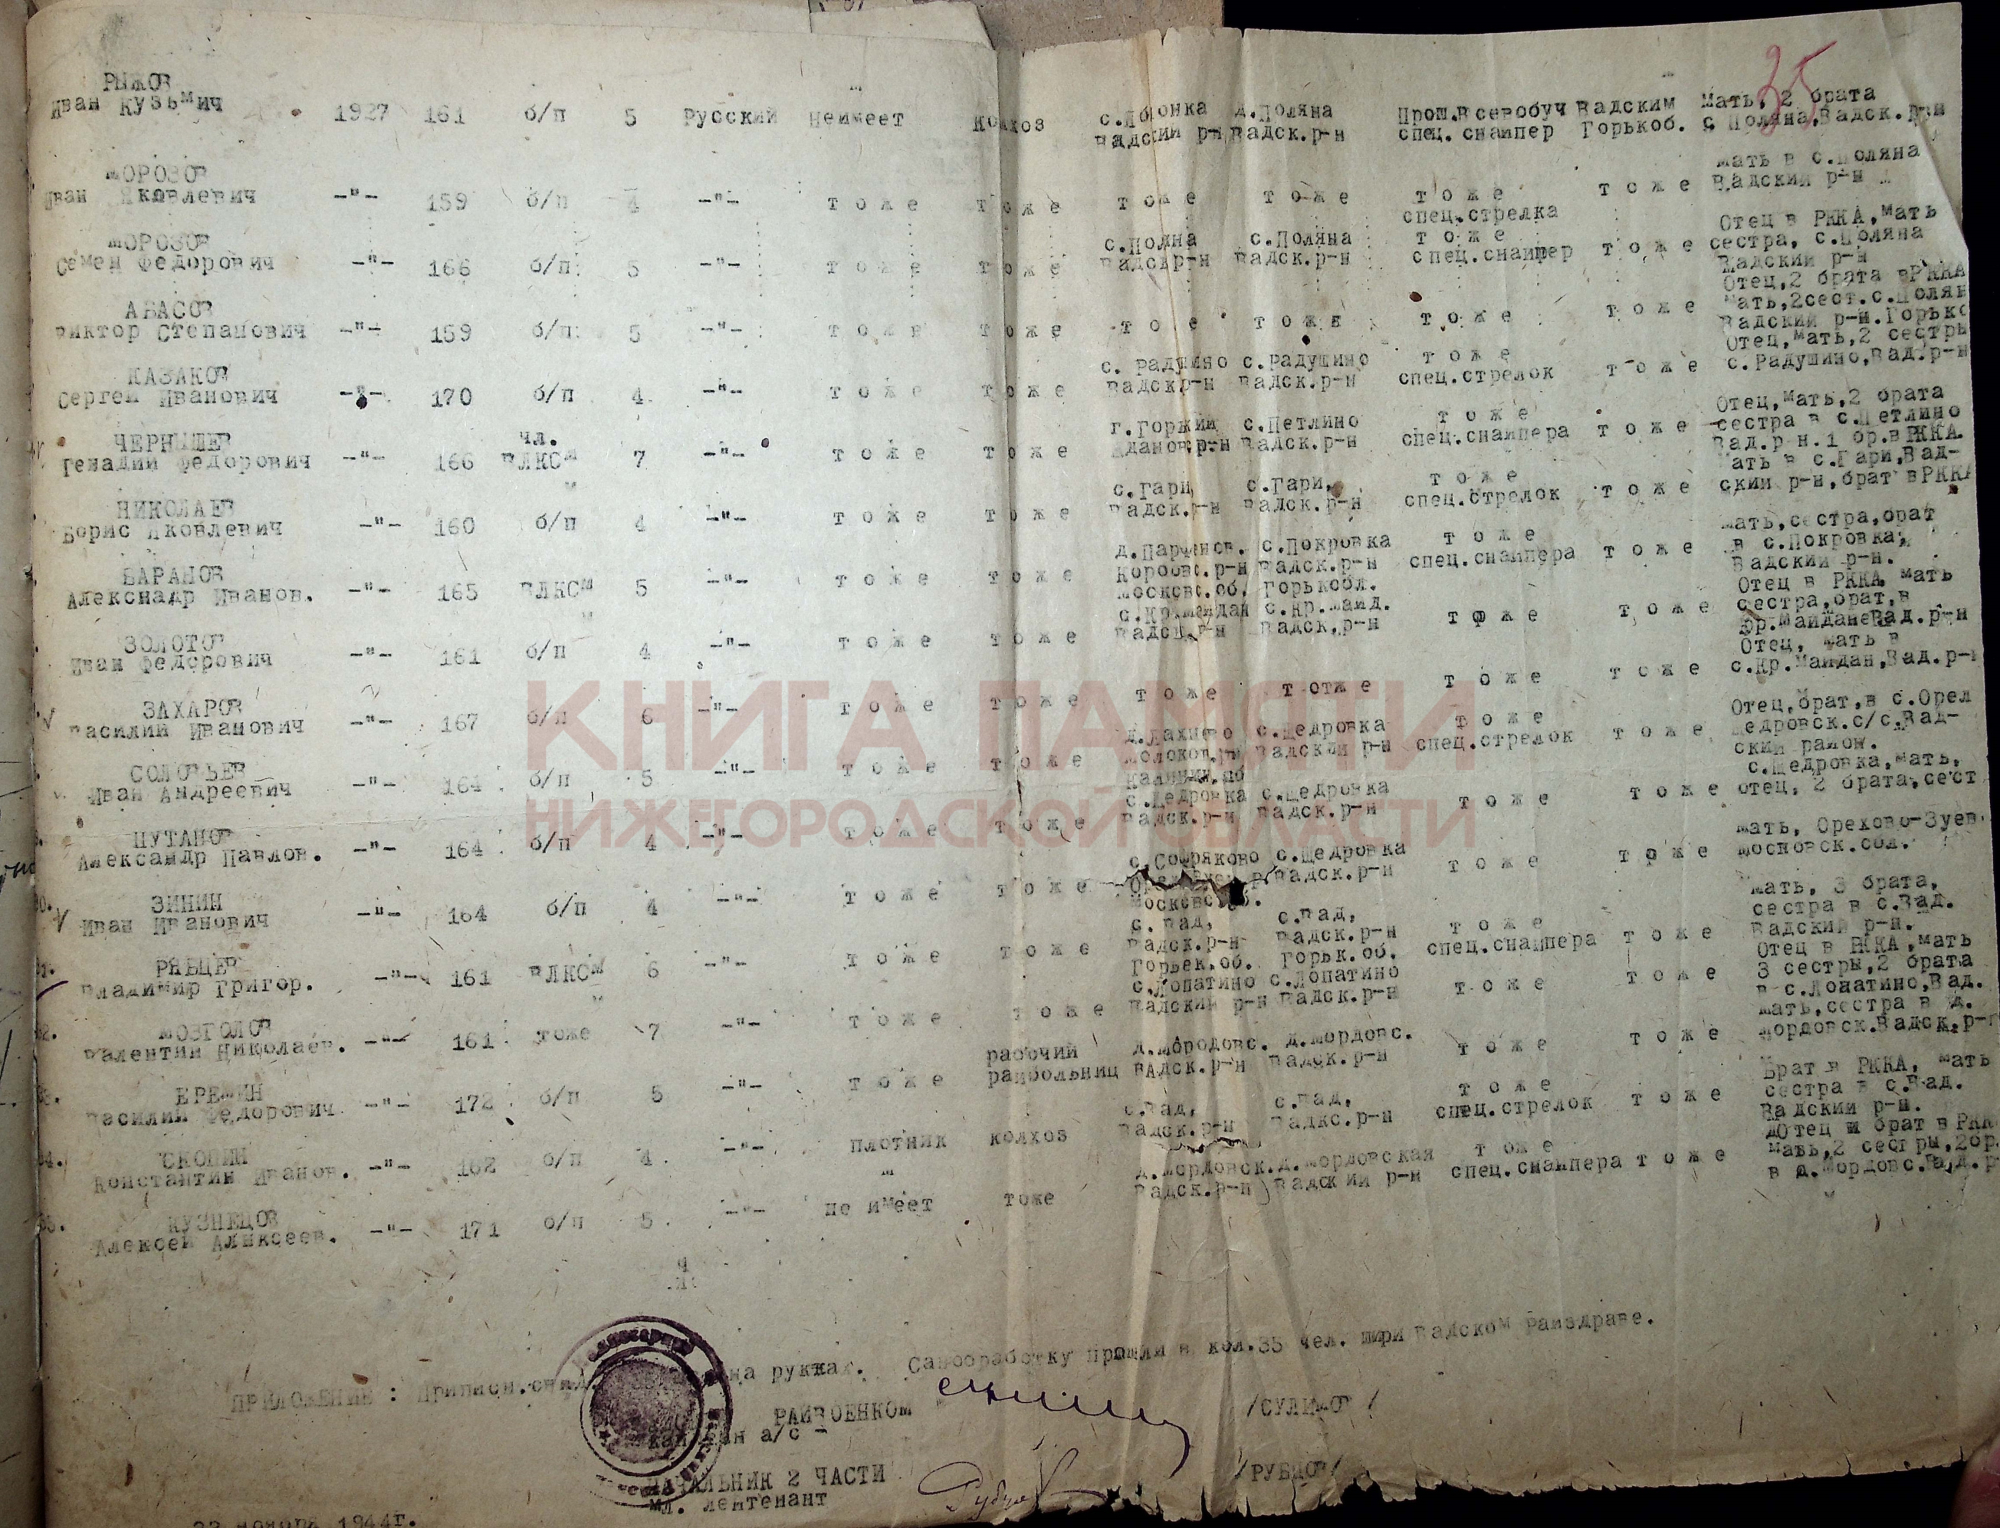 35
РЫЖОВ
Иван Кузьмич 1927 161 б/п 5 Русский Неимеет Колхоз с. д.Поляна Прош.Всевобуч Вадским Мать, 2 брата
Вадский р-н Вадск.р-н спец. снайпер Горькоб. с Поляна,Вадск.
МОРОЗОВ Мать в с.Поляна
Иван Яковлевич -"- 159 б/п 4 -"- тоже тоже тоже тоже тоже тоже Вадский р-н
спец.стрелка
МОРОЗОВ с.Полна с.Поляна тоже Отец в РККА,мать
Семен Федорович -"- 166 б/п 5 -"- тоже тоже Вадск.р-н спец.снайпер тоже сестра, с.Поляна
Вадский р-н
АБАСОВ Отец,2 брата вРККА
Виктор Степанович -"- 159 б/п 5 -"- тоже тоже тое тоже тоже тоже мать,2сест.с.Полян
Вадский р-н.Горьк
КАЗАКОВ с. Радушино с.Радушино тоже Отец,мать,2 сестры
Сергей Иванович -"- 170 б/п 4 -"- тоже тоже Вадскр-н Вадск.р-н спец.стрелок тоже с.Радушино,Вад.р-н
ЧЕРНЫШЕВ чл. с.Петлино тоже Отец,мать,2 брата
Генадий Федорович -"- 166 ВЛКСМ 7 -"- тоже тоже Вадск.р-н спец.снайпера тоже сестра в с.Петлино
Вад.р н.1 бр.вРККА
НИКОЛАЕВ с.Гари с.Гари, тоже Мать в с.Гари,Вад-
Борис Яковлевич -"- 160 б/п 4 -"- тоже тоже Вадск.р-н Вадск.р-н спец.стрелок тоже ский р-н,брат вРККА
БАРАНОВ с.Покровка тоже Мать,сестра,брат
Алекснадр Иванов. -"- 165 ВЛКСМ 5 -"- тоже тоже Вадск.р-н спец.снайпера тоже в с.Покровка,
Московс.об. Горькобл. Вадский р-н.
ЗОЛОТОВ с.Кр.Майд. Отец в РККА мать
Иван Федорович -"- 161 б/п 4 -"- тоже тоже Вадск.р-н тоже тоже сестра,брат,в
Вад.р-н
ЗАХАРОВ Отец, мать в
Василий Иванович -"- 167 б/п 6 -"- тоже тоже тоже тотже тоже тоже с.Кр.Майдан,Вад.р-н
СОЛОВЬЕВ с.Щедровка тоже Отец,брат,в с.Орел
Иван Андреевич -"- 164 б/п 5 -"- тоже тоже Вадский р-н спец.стрелок тоже Щедровск.с/с.Вад-
ский район.
ПУТАНОВ с.Щедровка с.Щедровка с.Щедровка,мать,
Александр Павлов. -"- 164 б/п 4 -"- тоже тоже Вадск.р-н Вадск.р-н тоже тоже отец, 2 брата,сест
30. ЗИНИН с.Щедровка мать, Орехово-Зуев.
Иван Иванович -"- 164 б/п 4 -"- тоже тоже Вадск.р-н тоже тоже Московск.обл.
31. РЯБЦЕВ с.Вад, с.Вад, тоже мать, 3 брата,
Владимир Григор. -"- 161 ВЛКСМ 6 -"- тоже тоже Вадск.р-н Вадск.р-н спец.снайпера тоже сестра в с.Вад.
Горьк.об. Вадский р-н.
32. МОЗГОЛОВ с.Лопатино с.Лопатино Отец в РККА,мать
Валентин Николаев. -"- 161 тоже 7 -"- тоже тоже Вадский р-н Вадск.р-н тоже тоже 3 сестры,2 брата
в с.Лопатино,Вад.
33. ЕРЕМИН рабочий д.Мородовс. д.Мордовс. мать,сестра в д.
Василий Федорович -"- 172 б/п 5 -"- тоже райбольниц вАдск.р-н Вадск.р-н тоже тоже Мордовск.Вадск.р-н
34. СКОПИН с.Вад, с.Вад, тоже Брат в РККА, мать
Константин Иванов. -"- 162 б/п 4 -"- плотник колхоз Вадск.р-н Вадкс.р-н спец.стрелок тоже сестра в с.Вад.
Вадский р-н.
35. КУЗНЕЦОВ д.Мордовск. д.Мордовская тоже Отец и брат в РКК
Алексей Алнксеев. -"- 171 б/п 5 -"- не имеет тоже Вадск.р-н Вадский р-н спец.снайпера тоже мать,2 сестры,2бр.
в д.Мордовс.Вад.р
КНИГА ПАМЯТИ
НИЖЕГОРОДСКОЙ ОБЛАСТИ
ПРИЛОЖЕНИЕ : Приписн.свид. на руках. Санобработку прошли в кол.35 чел. при Вадском Райздраве.
РАЙВОЕНКОМ
капитан а/с - /СУЛИМОВ/
НАЧАЛЬНИК 2 ЧАСТИ
Мл. лейтенант /РУБЦОВ/
23 ноября 1944г.